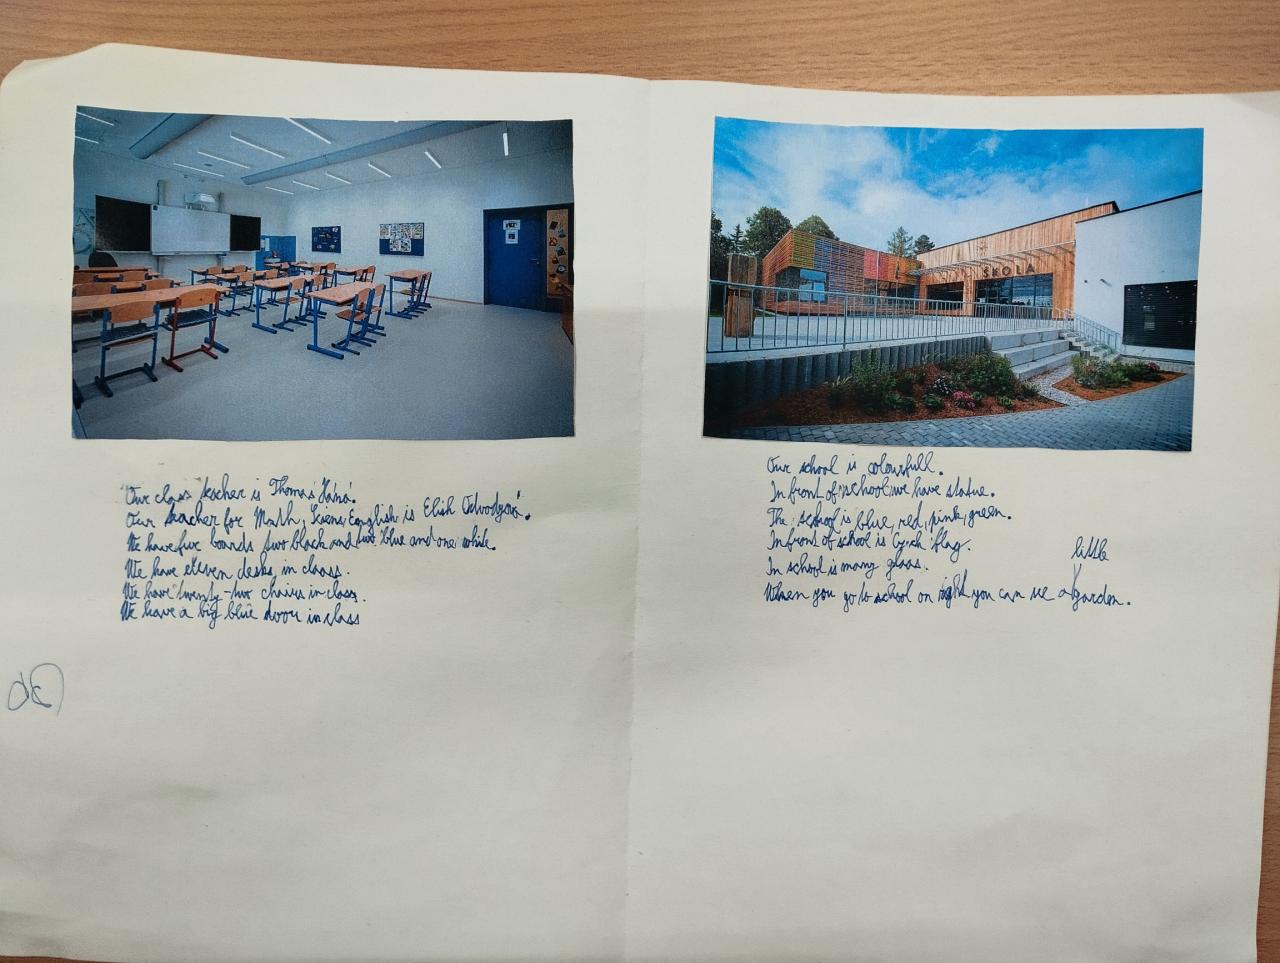 Our class teacher is Thomas
Our teacher for Math, Sciens, English is
We have five boards two black and two blue and one white.
We have eleven desks in claass.
We have twenty-two chairs in class.
We have a big blue door in class
ŠKOLA
Our school is colourfull.
In front of school we have statue.
The school is blue, red, pink, green.
In front of school is flag.
In school is many glass.
little
When you go to school on right you can see a garden.